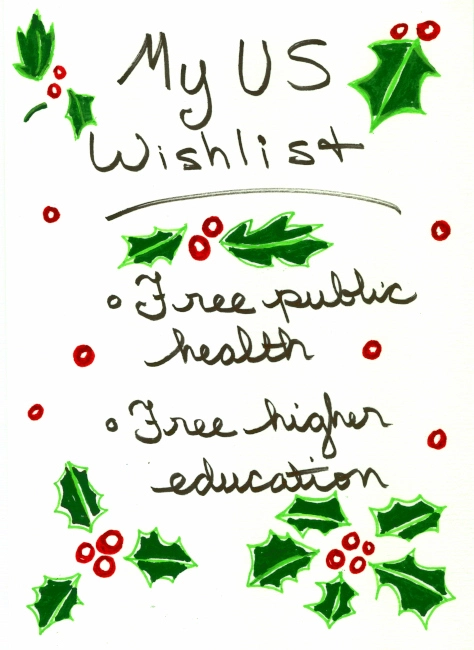 My US
Wishlist
Free public
health
Free higher
education